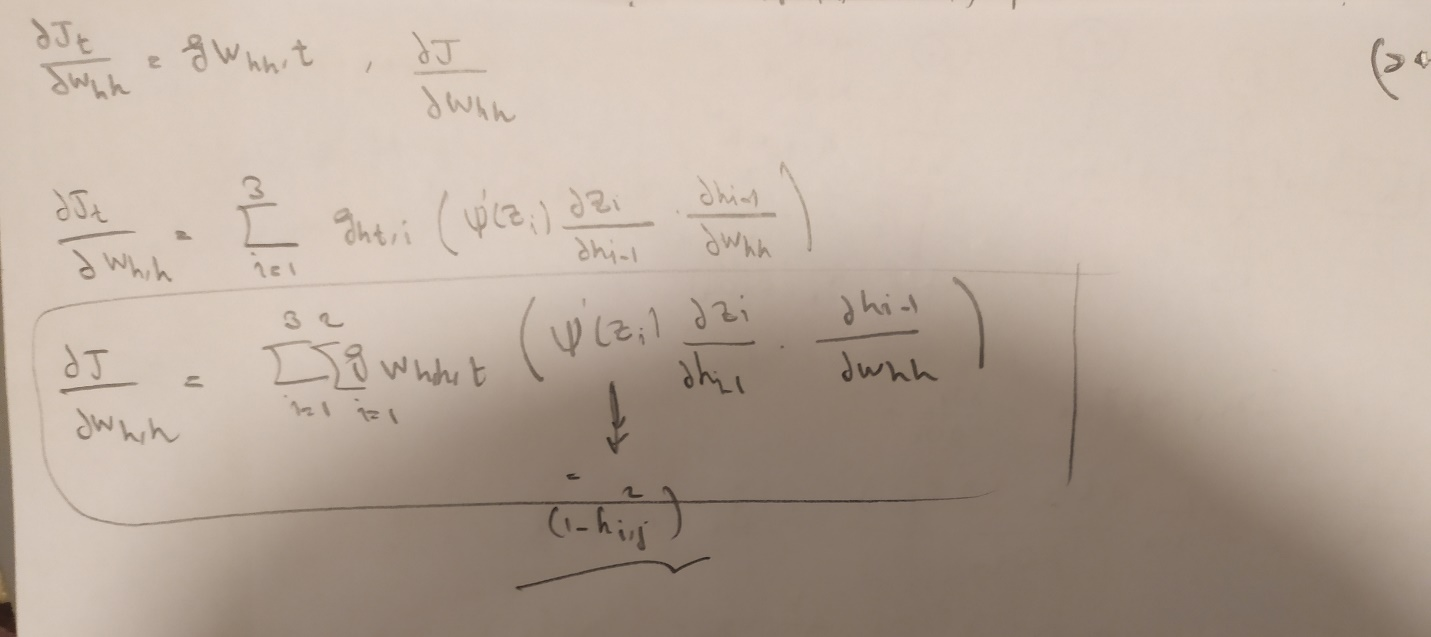 ∂J_t/∂w_hh = g w_hh,t , ∂J/∂w_hh
∂J_t/∂w_h,h = Σ_{i=1}^{3} g_ht,i ( ψ'(z_i) ∂z_i/∂h_{i-1} · ∂h_{i-1}/∂w_hh )
∂J/∂w_h,h = Σ_{i=1}^{3} Σ_{i=1}^{2} g w_hh,t ( ψ'(z_i) ∂z_i/∂h_{i-1} · ∂h_{i-1}/∂w_hh )
=
(1-h_{i,j}^2)